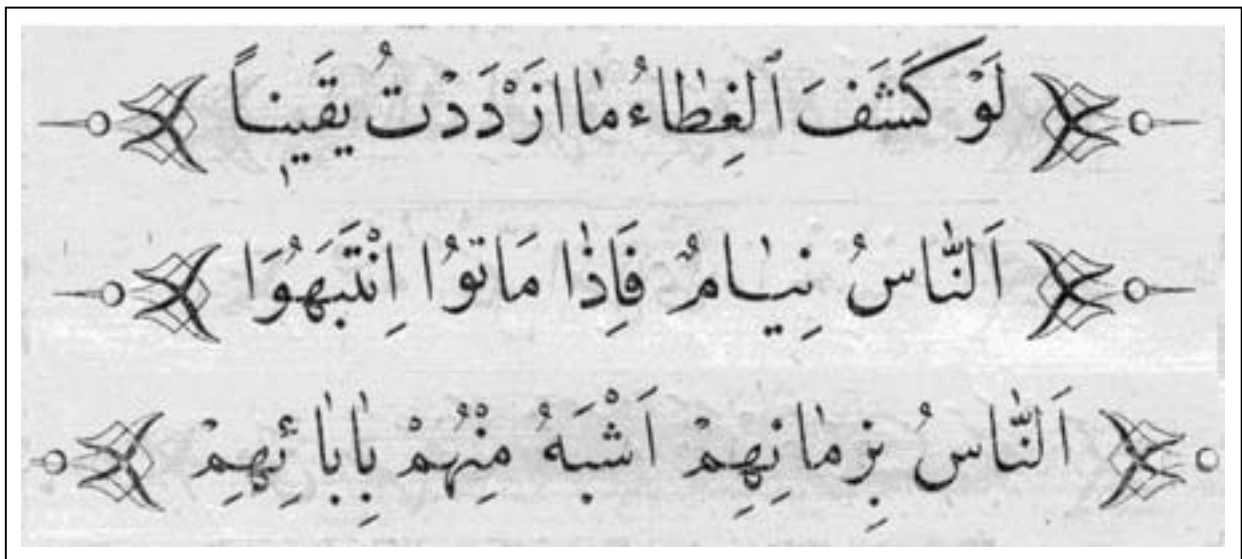 لَوْ كَشَفَ ٱلْغِطَاءُ مَا ازْدَدْتُ يَقِينًا
اَلنَّاسُ نِيَامٌ فَاِذَا مَاتُوُا اِنْتَبَهُوَا
اَلنَّاسُ بِزِمَانِهِمْ اَشْبَهُ مِنْهُمْ بِاٰبَائِهِمْ